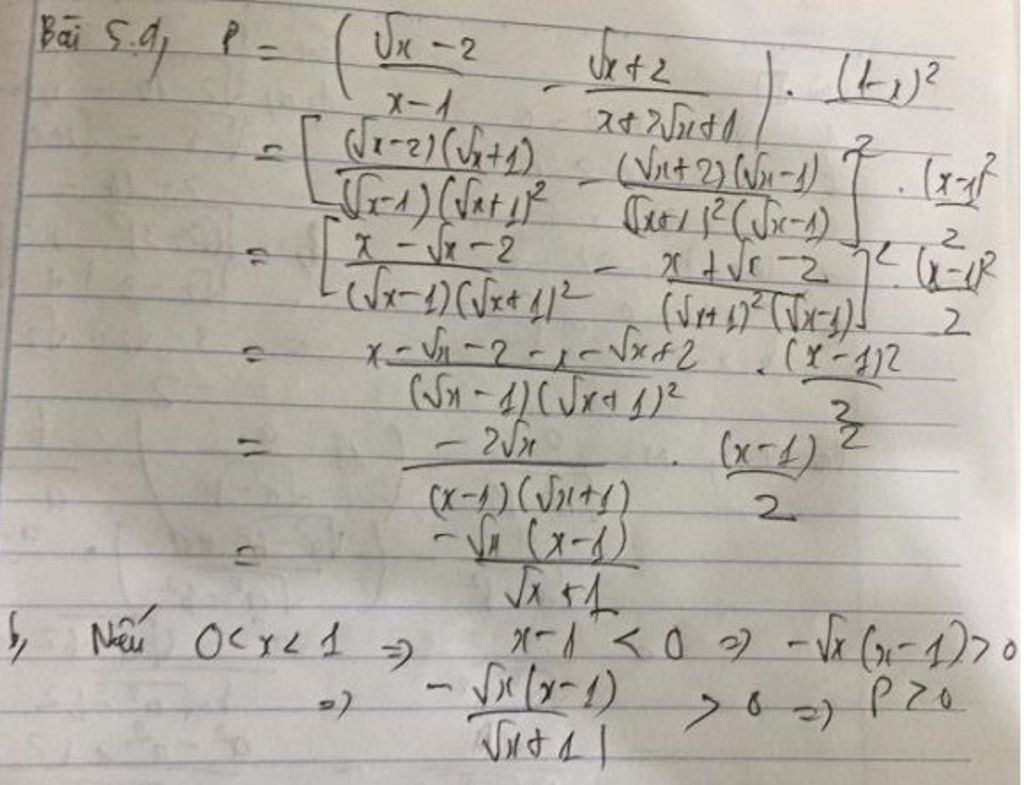 Bài 5.a, P = ( (√x − 2)/(x − 1) − (√x + 2)/(x + 2√x + 1) ) . (1−x)²
= [ (√x−2)(√x+1)/(√x−1)(√x+1)² − (√x+2)(√x−1)/(√x+1)²(√x−1) ]² . (x−1)²/2
= [ (x − √x − 2)/(√x−1)(√x+1)² − (x + √x − 2)/(√x+1)²(√x−1) ]² . (x−1)²/2
= (x − √x − 2 − x − √x + 2)/(√x − 1)(√x + 1)² . (x − 1)²/2
= − 2√x/(x−1)(√x+1) . (x−1)²/2
= −√x (x−1)/(√x + 1)
b, Nếu 0 < x < 1 ⇒ x−1 < 0 ⇒ −√x(x−1) > 0
⇒ −√x(x−1)/(√x+1) > 0 ⇒ P > 0